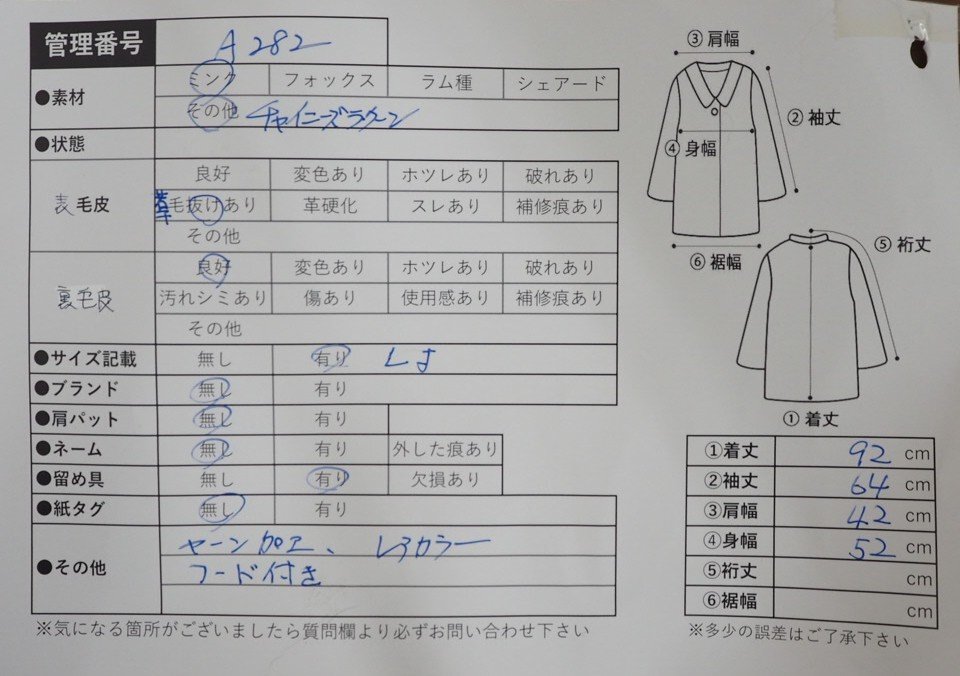 管理番号 A282
●素材 ミンク フォックス ラム種 シェアード
その他 チャイニーズラクーン
●状態
表毛皮 良好 変色あり ホツレあり 破れあり
毛抜けあり 革硬化 スレあり 補修痕あり
その他
裏毛皮 良好 変色あり ホツレあり 破れあり
汚れシミあり 傷あり 使用感あり 補修痕あり
その他
●サイズ記載 無し 有り
●ブランド 無し 有り
●肩パット 無し 有り
●ネーム 無し 有り 外した痕あり
●留め具 無し 有り 欠損あり
●紙タグ 無し 有り
●その他 ヤーン加工、レアカラー
フード付き
※気になる箇所がございましたら質問欄より必ずお問い合わせ下さい
③肩幅
②袖丈
④身幅
⑥裾幅
⑤裄丈
①着丈
①着丈 92 cm
②袖丈 64 cm
③肩幅 42 cm
④身幅 52 cm
⑤裄丈 cm
⑥裾幅 cm
※多少の誤差はご了承下さい